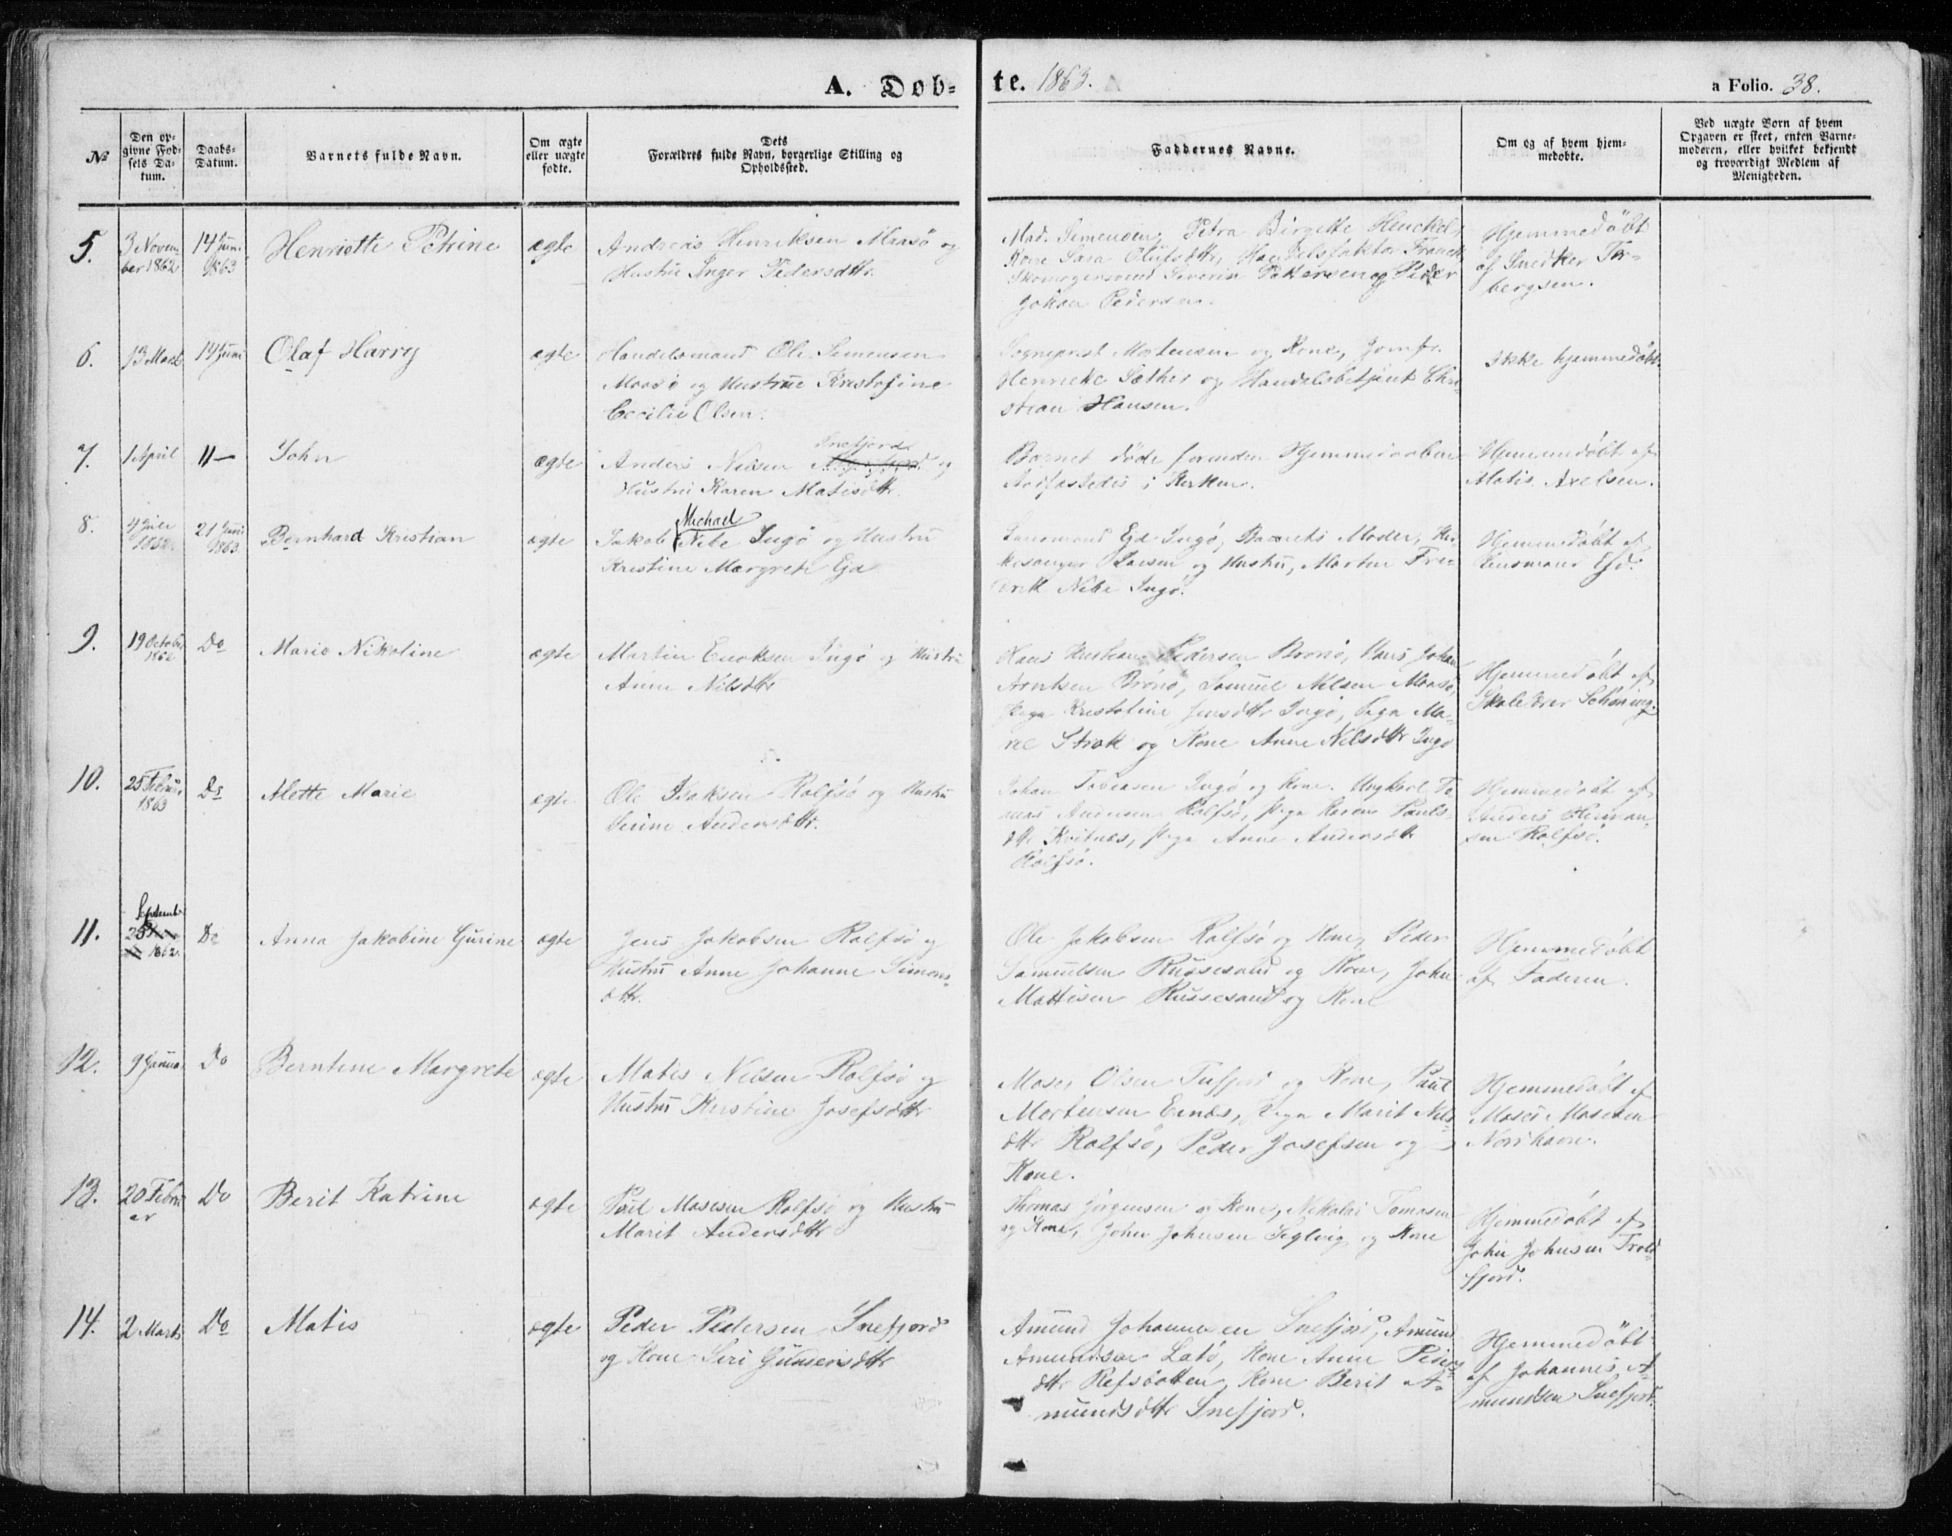 A. Døb-
te. 1863.
a Folio. 38.
№
Den op-
givne Fød-
sels Da-
tum.
Daabs-
Datum.
Barnets fulde Navn.
Om ægte
eller uægte
fødte.
Dets
Forældres fulde Navn, borgerlige Stilling og
Opholdssted.
Faddernes Navne.
Om og af hvem hjem-
medøbte.
Ved uægte Børn af hvem
Opgaven er skeet, enten Barne-
moderen, eller hvilket bekjendt
og troværdigt Medlem af
Menigheden.
5.
3 Novem
ber 1862
14 Juni
1863
Henriette Petrine
ægte
Andreas Henriksen Maasø og
Hustru Inger Pedersdttr.
Mad. Simensen, Petra Birgitte Henckel,
Kone Sara Olufsdttr, Handelsfaktor Franck
Severin Pettersen og Peder
Johan Pedersen.
Hjemmedøbt
af Snedker Tor-
bergsen.
6.
13 Marts
14 Juni
Olaf Harry
ægte
Handelsmand Ole Simensen
Maasø og Hustrue Kristofine
Cecilie Olsen.
Sogneprest Mortensen og Kone, Jomfr.
Henrieke Sæther og Handelsbetjent Chri-
stian Hansen.
Ikke hjemmedøbt.
7.
1 April
11 —
John
ægte
Snefjord
Anders Nilsen og
Hustru Karen Matisdttr.
Barnet døde forinden Hjemmedaaben
Stadfæstedes i Kirken.
Hjemmedøbt af
Matis Axelsen.
8.
4 Juli
1862
21 Juni
1863
Bernhard Kristian
ægte
Michael
Jakob Nebe Ingø og Hustru
Kristine Margrete Ejd
Lensmand Ejd Ingø, Barnets Moder, Kir-
kesanger Larsen og Hustru, Morten Fre-
drik Nebe Ingø.
Hjemmedøbt af
Lensmand Ejd.
9.
19 October
1862
Do
Marie Nikoline
ægte
Martin Enoksen Ingø og Hustru
Anne Nilsdttr
Hans Kristian Pedersen Bronø, Hans Johan
Arntsen Brønø, Samuel Nilsen Maasø,
Pige Kristoline Jensdttr Ingø, Pige Ma-
rie Strøk og Kone Anne Nilsdttr Ingø
Hjemmedøbt af
Skolelærer Schøning.
10.
25 Februar
1863
Do
Alette Marie
ægte
Ole Isaksen Rolfsø og Hustru
Serine Andersdttr.
Johan Tobiasen Ingø og Kone. Ungkarl To-
mas Andersen Rolfsø, Pige Karen Pauls-
dttr Kvitnæs, Pige Anne Andersdttr
Rolfsø.
Hjemmedøbt af
Anders Herman-
sen Rolfsø.
11.
Septemb
25
1862.
Do
Anna Jakobine Gurine
ægte
Jens Jakobsen Rolfsø og
Hustru Anne Johanne Simons-
dttr.
Ole Jakobsen Rolfsø og Kone, Peder
Samuelsen Russesund og Kone, John
Mattisen Russesund og Kone
Hjemmedøbt
af Faderen.
12.
9 Januar
Do
Berntine Margrete
ægte
Matis Nilsen Rolfsø og
Hustru Kirstine Josefsdttr
Moses Olsen Tufjord og Kone, Paul
Mortensen Eenæs, Pige Marit Nils-
dttr Rolfsø, Peder Josefsen og
Kone.
Hjemmedøbt af
Moses Mosesen
Nordhavn.
13.
20 Febru
ar
Do
Berit Katrine
ægte
Paul Mosesen Rolfsø og Hustru
Marit Andersdttr
Thomas Jørgensen og Kone, Nikolai Tomasen
og Kone, John Johnsen Seglvig og Kone
Hjemmedøbt af
John Johnsen Trold-
fjord.
14.
2 Marts
Do
Matis
ægte
Peder Pedersen Snefjord
og Kone Siri Gundersdttr
Amund Johannesen Snefjord, Amund
Amundsen Latø, Kone Anne Peders-
dttr Refsbotten, Kone Berit A-
mundsdttr Snefjord.
Hjemmedøbt
af Johannes A-
mundsen Snefjord.